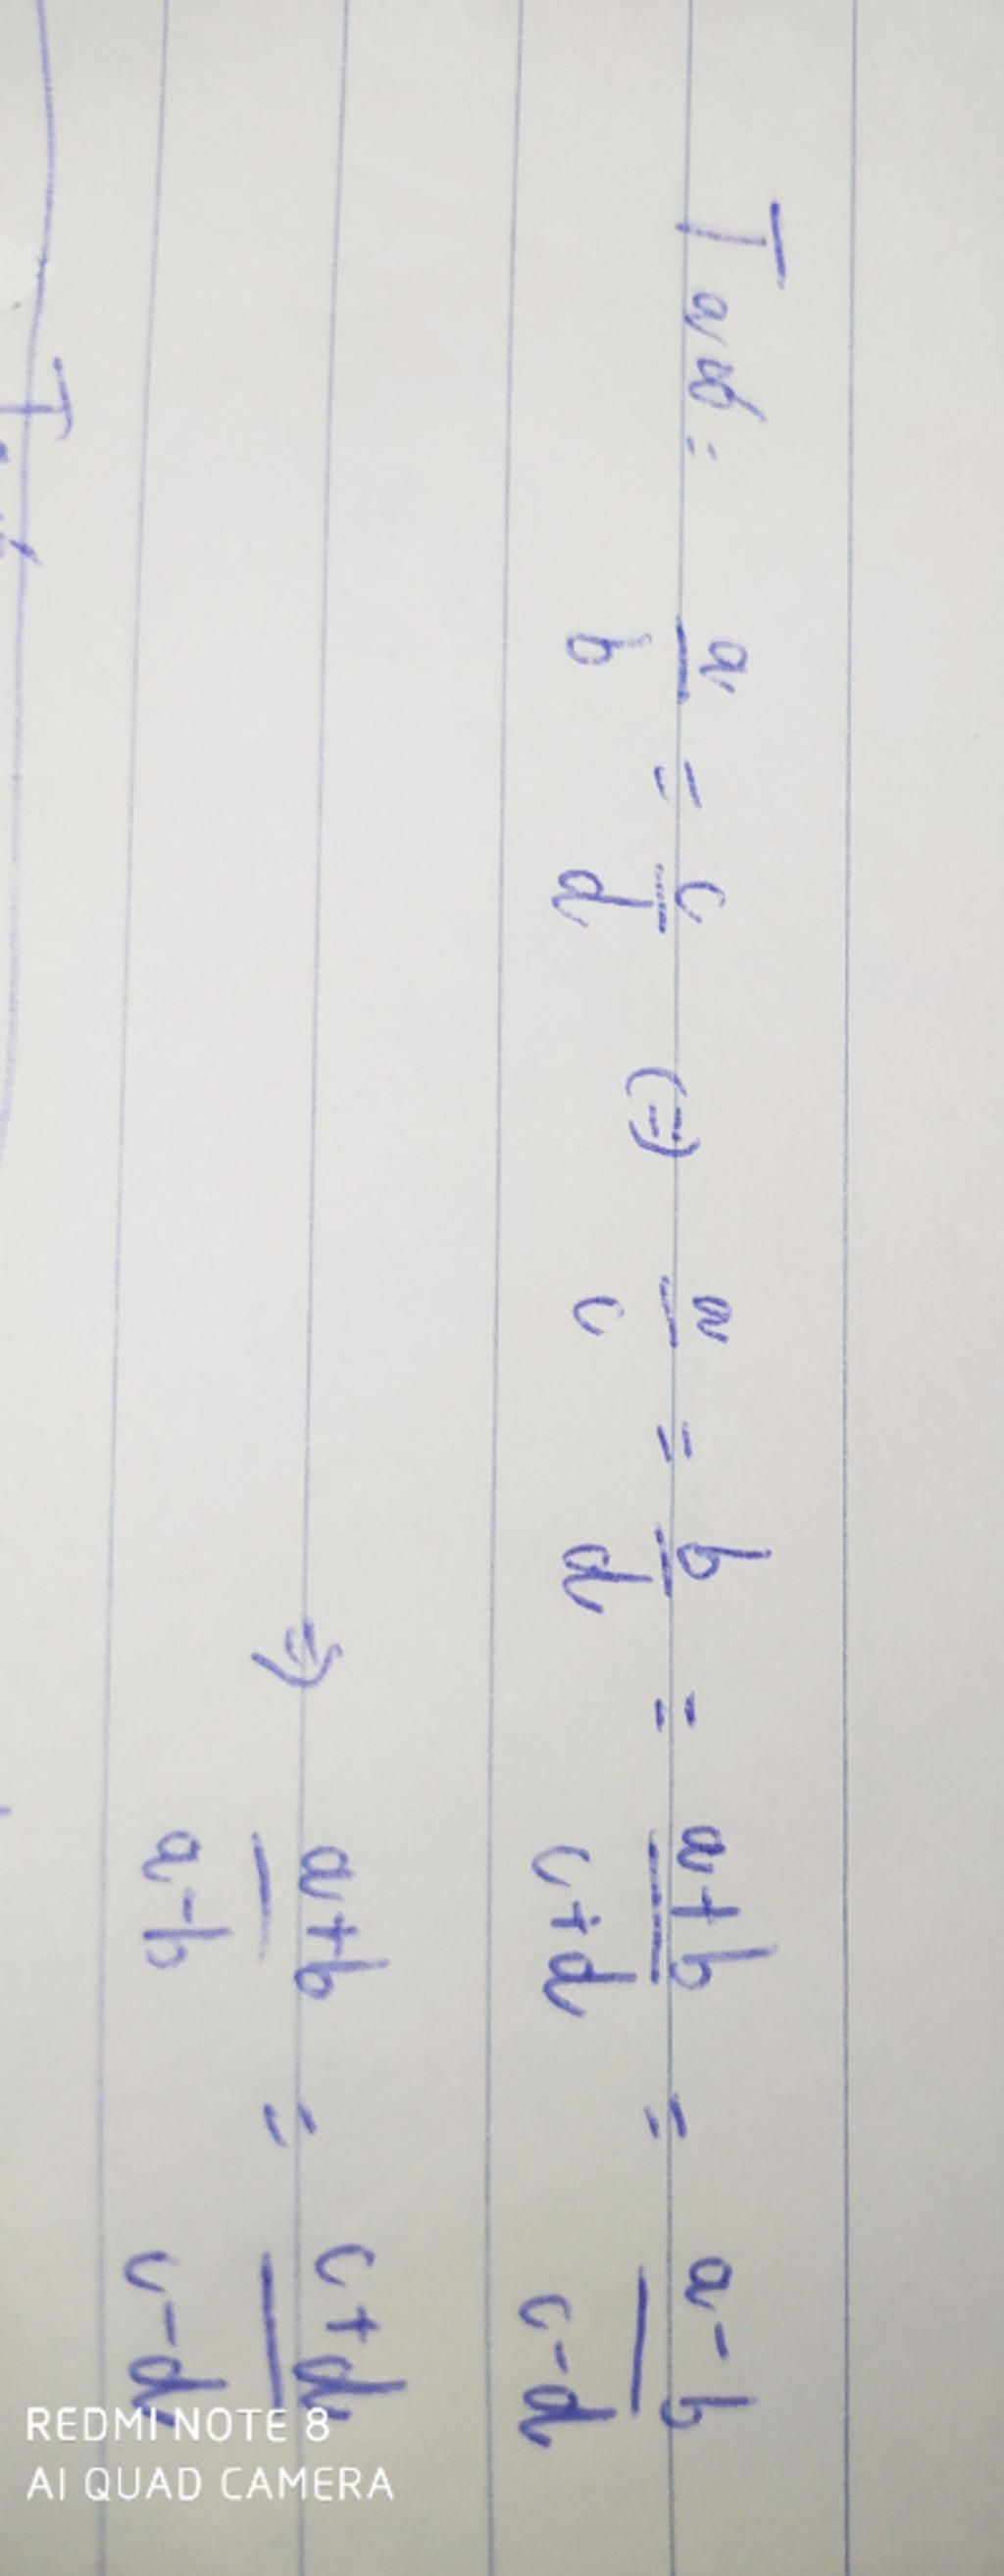 Ta có: a/b = c/d (=) a/c = b/d = a+b/c+d = a-b/c-d
=> a+b/a-b = c+d/c-d
REDMI NOTE 8
AI QUAD CAMERA